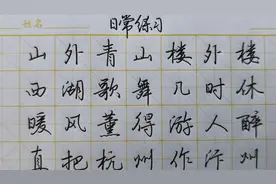 姓名
日常练习
山外青山楼外楼
西湖歌舞几时休
暖风董得游人醉
直把杭州作汴州